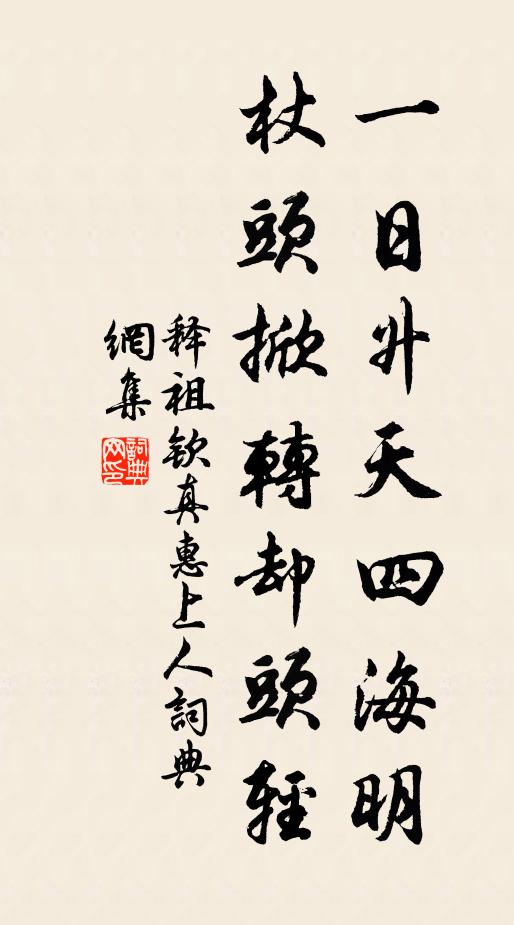 一日升天四海明
杖頭掀轉却頭輕
释祖钦真惠上人詞典
網集
詞典
网印